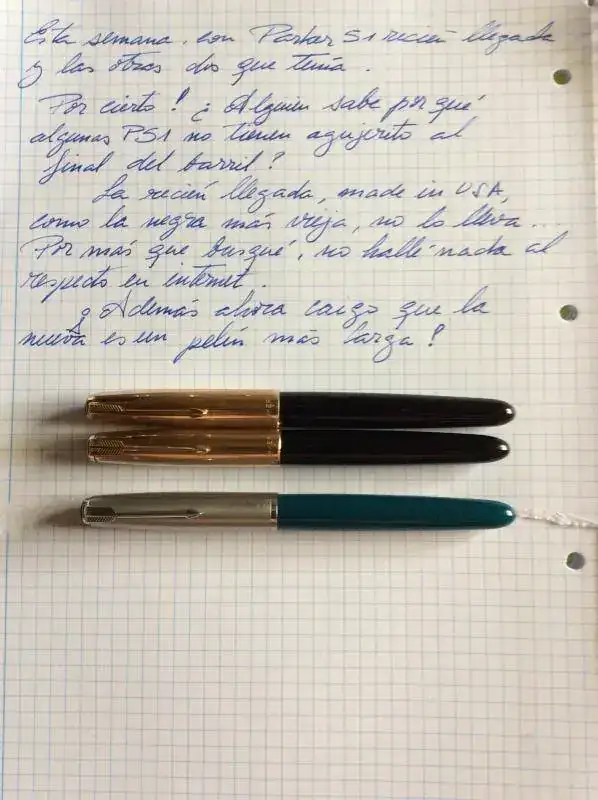 Esta semana, con Parker 51 recién llegada
y las otras dos que tenía.
Por cierto! ¿Alguien sabe por qué
algunas P51 no tienen agujerito al
final del barril?
La recién llegada, made in USA,
como la negra más vieja, no lo lleva...
Por más que busqué, no hallé nada al
respecto en internet.
Además ahora caigo que la
nueva es un pelín más larga!